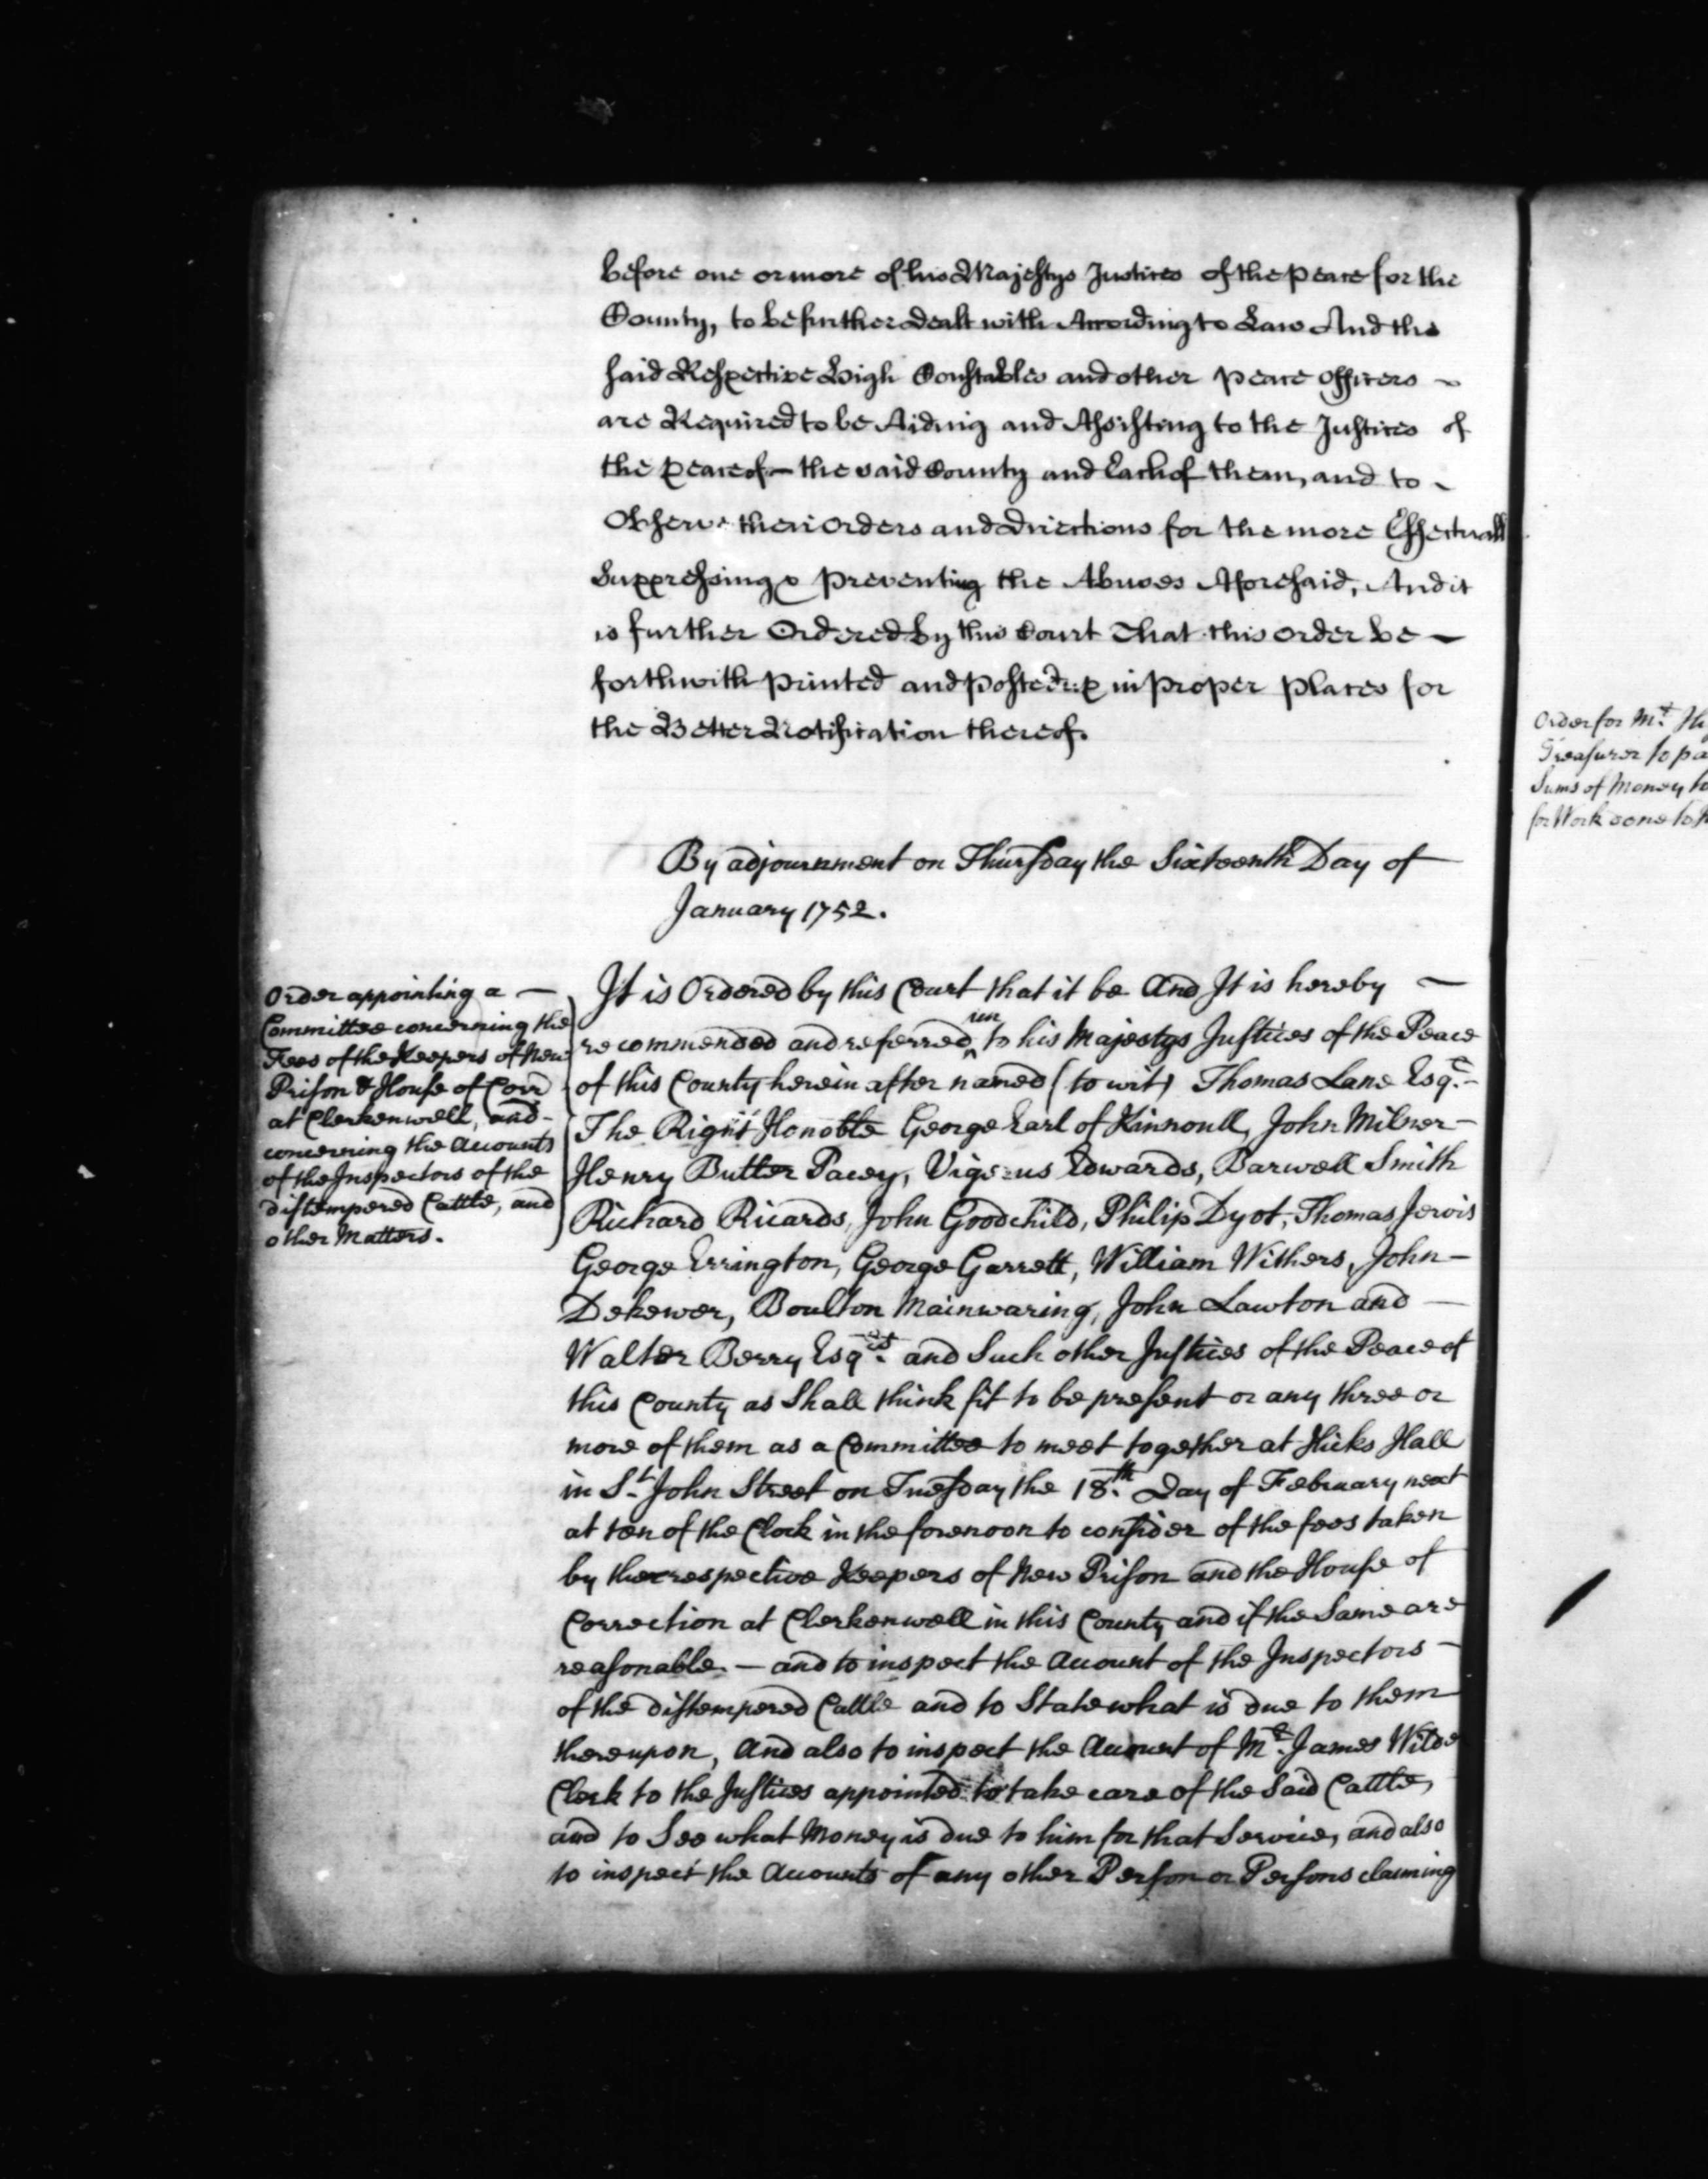 before one or more of his Majestys Justices of the Peace for the
County, to be further dealt with According to Law And the
said Respective High Constables and other Peace Officers
are Required to be Aiding and Assisting to the Justices of
the Peace of the said County and Each of them, and to
Observe their Orders and Directions for the more Effectuall
Suppressing & Preventing the Abuses Aforesaid, And it
is further Ordered by this Court That this Order be
forthwith Printed and Posted up in Proper Places for
the Better Notification thereof.
By adjournment on Thursday the Sixteenth Day of
January 1752.
Order appointing a
Committee concerning the
Fees of the Keepers of New
Prison & House of Corr
at Clerkenwell, and
concerning the Accounts
of the Inspectors of the
distempered Cattle, and
other Matters.
It is Ordered by this Court that it be And It is hereby
recommended and referred un to his Majestys Justices of the Peace
of this County herein after named (to wit) Thomas Lane Esqr.
The Right Honoble George Earl of Kinnoull, John Milner
Henry Butler Pacey, Vigerus Edwards, Barwell Smith
Richard Ricards, John Goodchild, Philip Dyot, Thomas Jervis
George Errington, George Garrett, William Withers, John
Dekewer, Boulton Mainwaring, John Lawton and
Walter Berry Esqrs. and Such other Justices of the Peace of
this County as Shall think fit to be present or any three or
more of them as a Committee to meet together at Hicks Hall
in St. John Street on Tuesday the 18th. Day of February next
at ten of the Clock in the forenoon to consider of the fees taken
by the respective Keepers of New Prison and the House of
Correction at Clerkenwell in this County and if the Same are
reasonable — and to inspect the Account of the Inspectors
of the distempered Cattle and to State what is due to them
thereupon, And also to inspect the Account of Mr. James Wilde
Clerk to the Justices appointed to take care of the Said Cattle,
and to See what Money is due to him for that Service, and also
to inspect the Accounts of any other Person or Persons claiming
Order for Mr.
Treasurer to
Sums of Money
for Work done